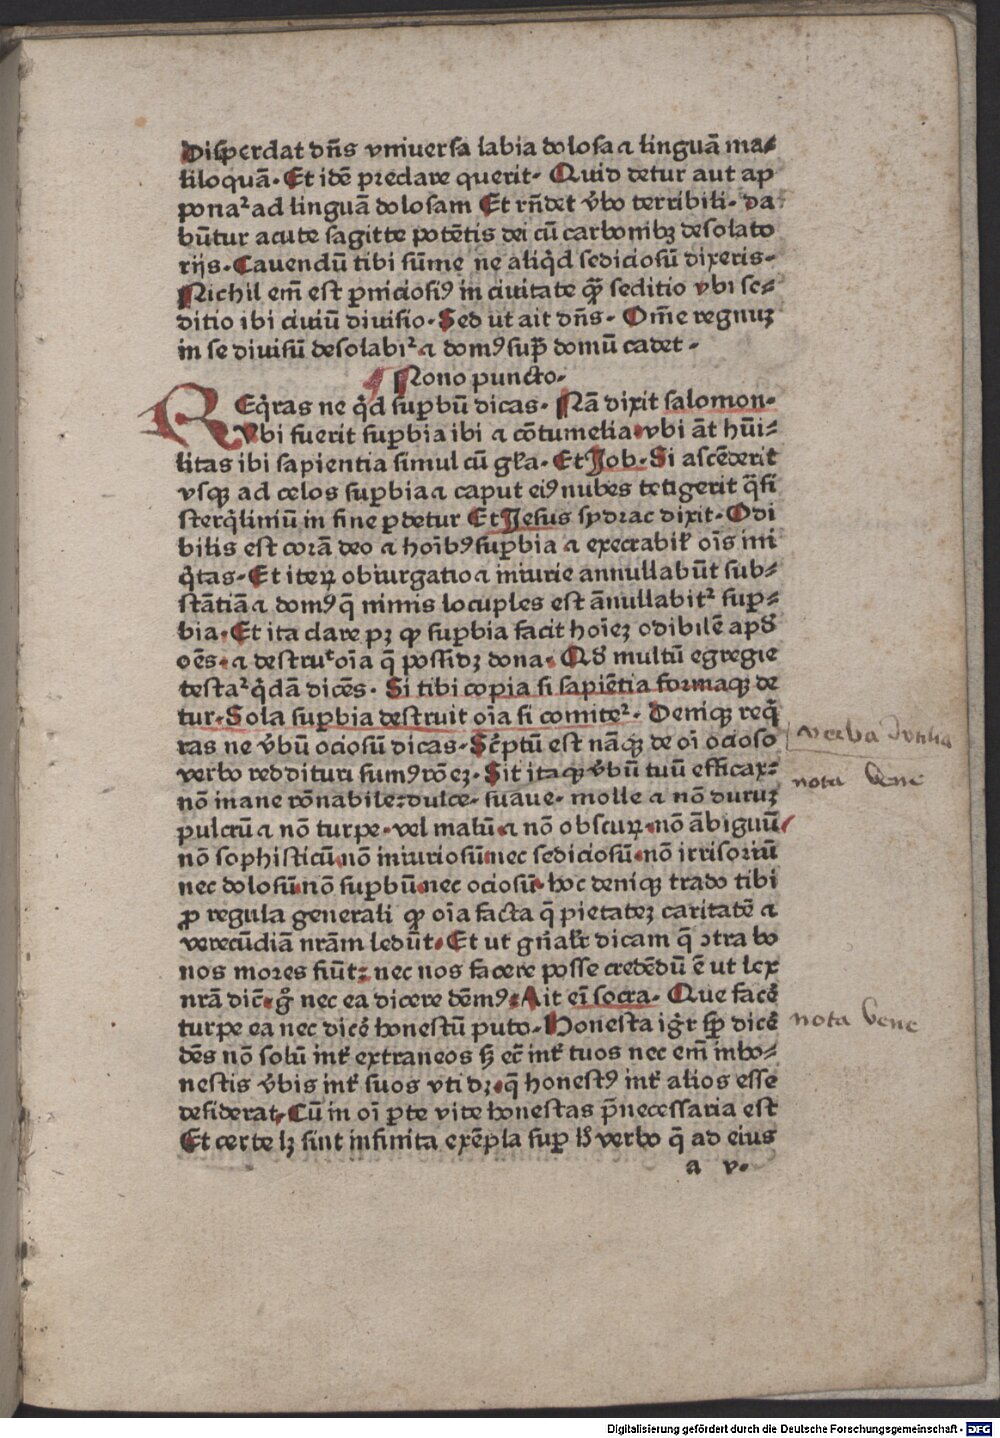 Disperdat dn̄s vniuersa labia dolosa ⁊ linguā ma⸗
liloquā. Et idē preclare querit. Quid detur aut ap
ponaꝰ ad linguā dolosam Et rn̄det v̄bo terribili. da
būtur acute sagitte potētis dei cū carbonibꝫ desolato
rijs. Cauendū tibi sūme ne aliq̇d sediciosū dixeris.
Nichil em̄ est ꝑniciosiꝰ in ciuitate qꝫ̄ seditio vbi se⸗
ditio ibi ciuiū diuisio. Sed ut ait dn̄s. Om̄e regnuꝫ
in se diuisū desolabiᷣ ⁊ domꝰ sup̄ domū cadet.
¶ Nono puncto.
REq̇ras ne q̇d suꝑbū dicas. Nā dixit salomon.
vbi fuerit suꝑbia ibi ⁊ cōtumelia. vbi āt hūi⸗
litas ibi sapientia simul cū gl̄a. Et Job. Si ascēderit
vsqꝫ ad celos suꝑbia ⁊ caput eiꝰ nubes tetigerit q̄si
sterq̇liniū in fine ꝑdetur Et Jesus sydrac dixit. Odi
bilis est corā deo ⁊ hoībꝰ suꝑbia ⁊ execrabil̄ oīs ini
q̇tas. Et iteꝝ obiurgatio ⁊ iniurie annullabūt sub⸗
stātiā ⁊ domꝰ q̄ nimis locuples est ānullabitᷣ suꝑ⸗
bia. Et ita clare pꝫ ꝙ suꝑbia facit hoīeꝫ odibilē apđ
oēs. ⁊ destruᷣt oīa q̄ possidꝫ bona. Qđ multū egregie
testaᷣ q̇dā dicēs. Si tibi copia si sapiētia formaqꝫ de
tur. Sola suꝑbia destruit oīa si comiteᷣ. Deniqꝫ req̇
ras ne v̄bū ociosū dicas. Sc̄ptū est nāqꝫ de oī ocioso
verbo reddituri sumꝰ rōeꝫ. Sit itaqꝫ v̄bū tuū efficax:
nō inane rōnabile: dulce. suaue. molle ⁊ nō duruꝫ
pulcrū ⁊ nō turpe. vel malū. ⁊ nō obscuꝝ. nō ābiguū
nō sophisticū. nō iniuriosū. nec sediciosū. nō irrisoriū
nec dolosū. nō suꝑbū. nec ociosū. hoc deniqꝫ trado tibi
ꝓ regula generali ꝙ oīa facta q̄ pietateꝫ caritatē ⁊
verecūdiā nrām ledūt. Et ut gn̄alr̄ dicam q̄ ↄtra bo
nos mores fiūt: nec nos facere posse credēdū ē ut lex
nrā dic̄. gͦ nec ea dicere dēmꝰ: Ait eī socra. Que facē
turpe ea nec dicē honestū puto. Honesta igr̄ sꝑ dicē
dēs nō solū int̄ extraneos sꝫ ec̄ int̄ tuos nec em̄ inho⸗
nestis v̄bis int̄ suos vti dꝫ. q̄ honestꝰ int̄ alios esse
desiderat. Cū in oī ꝑte vite honestas p̄necessaria est
Et certe lꝫ sint infinita exēpla suꝑ B̄ verbo q̄ ad eius
a v.
verba
nota bene
nota bene
Digitalisierung gefördert durch die Deutsche Forschungsgemeinschaft - DFG